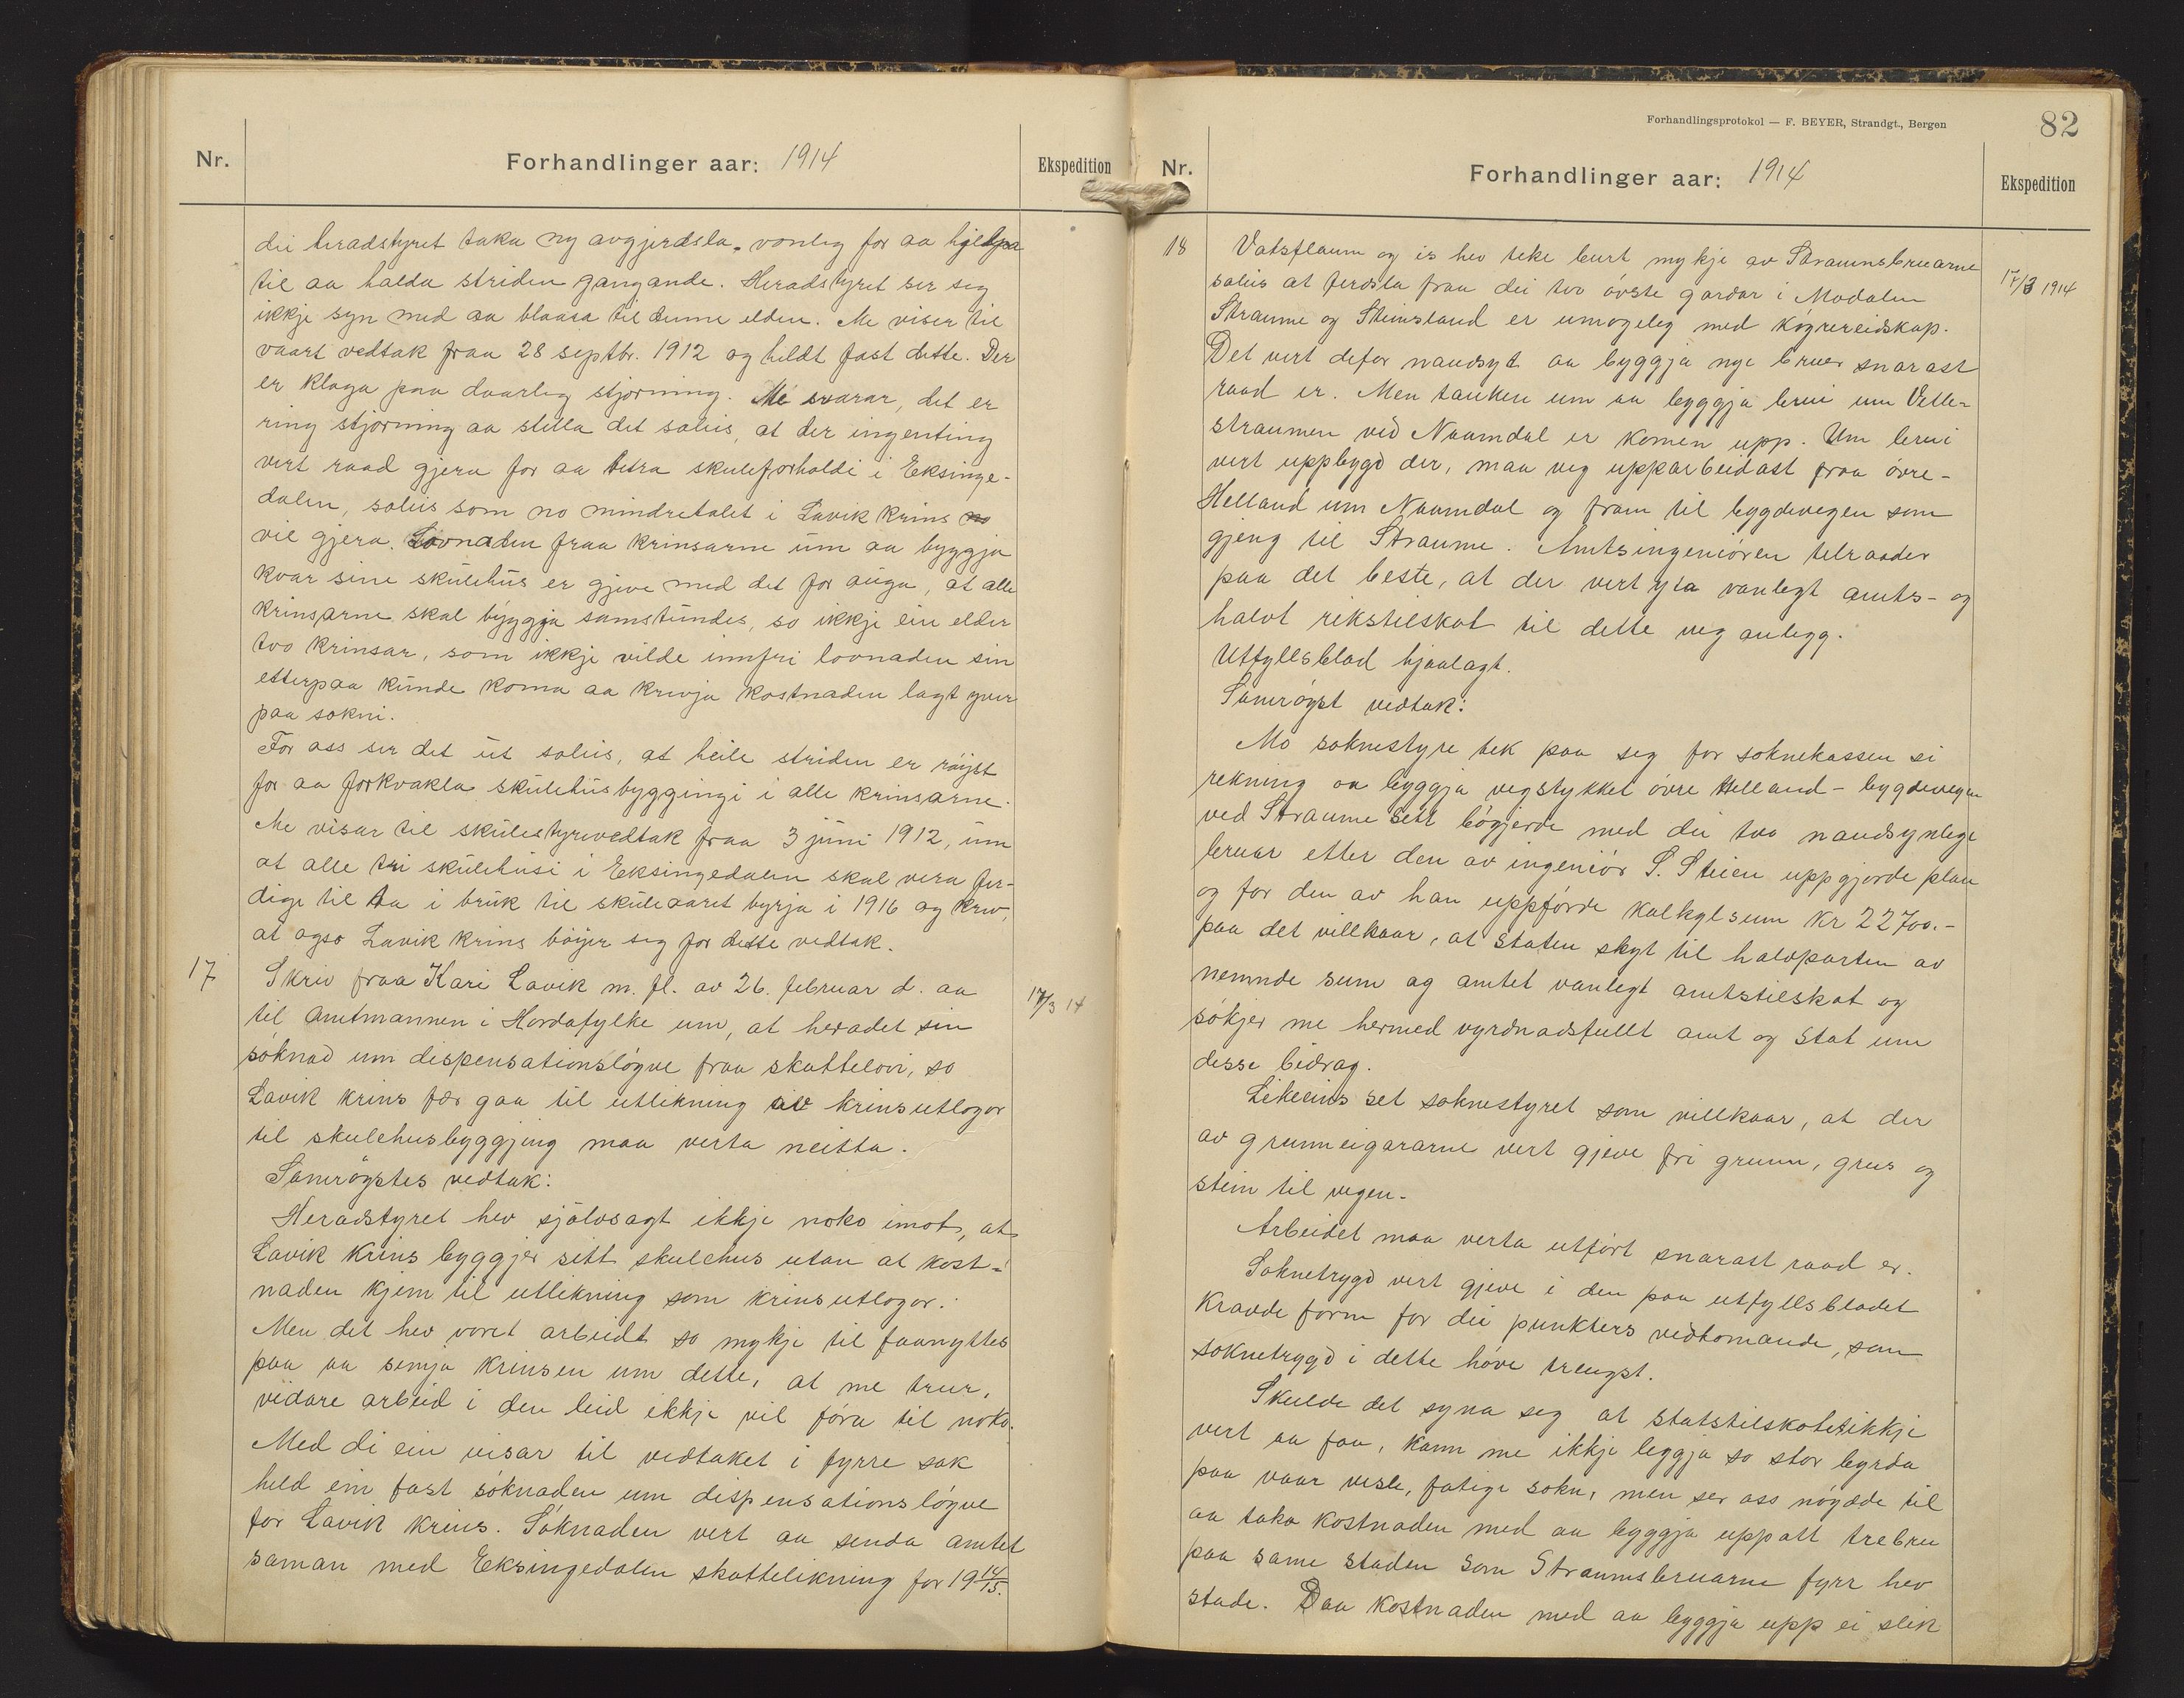 Nr.
Forhandlinger aar: 1914
Ekspedition
dei heradstyret taka ny avgjerdsla, vonleg for aa hjelpa
til aa halda striden gangande. Heradstyret ser seg
ikkje syn med aa blaasa til denne elden. Me viser til
vaart vedtak fraa 28 septbr. 1912 og heldt fast dette. Der
er klaga paa daarleg stjorning. Me svarar, det er
ring stjorning aa stella det soleis, at der ingenting
vert raad gjera for aa betra skuleforholdi i Eksinge-
dalen, soleis som no mindretalet i Lavik krins no
vil gjera. Lovnaden fraa krinsarne um aa byggja
kvar sine skulehus er gjeve med det for auga, at alle
krinsarne skal byggja samstundes, so ikkje ein elder
two krinsar, som ikkje vilde innfri lovnaden sin
etterpaa kunde koma aa krevja kostnaden lagt yver
paa sokni.
For oss ser det ut soleis, at heile striden er röist
for aa forkvakla skulehusbyggingi i alle krinsarne.
Me visar til skulestyrevedtak fraa 3 juni 1912, um
at alle tri skulehusi i Eksingedalen skal vera fer-
dige til aa i bruk til skuleaaret byrja i 1916 og krev,
at ogso Lavik krins böyer seg for dette vedtak.
17 Skriv fraa Kari Lavik m. fl. av 26. februar d. aa
17/3 14
til Amtmannen i Hordafylke um, at heradet sin
söknad um dispensationslögve fraa skattelovi, so
Lavik krins fær gaa til utlikning av krinsutlogor
til skulehusbyggjing maa verta neitta.
Samrögstes vedtak:
Heradstyret hev sjölvsagt ikkje noko imot, at
Lavik krins byggjer sitt skulehus utan at kost-
naden kjem til utlikning som krinsutlogor.
Men det hev voret arbeidt so mykje til faanyttes
paa aa semja krinsen um dette, at me trur,
vidare arbeid i den leid ikkje vil föra til noko.
Med di ein visar til vedtaket i fyrre sak
held ein fast söknaden um dispensationslögve
for Lavik krins. Söknaden vert aa senda amtet
saman med Eksingedalen skattelikning for 1914/15.
Forhandlingsprotokol — F. BEYER, Strandgt., Bergen
82
Nr.
Forhandlinger aar: 1914
Ekspedition
18 Vatsflaum og is hev teke burt mykje av Straumsbruarne
17/3 1914
soleis at ferdsla fraa dei tvo övste gardar i Modalen
Straume og Steinsland er umogeleg med kögrereidskap.
Det vert defor naudsyt aa byggja nye bruer snarast
raad er. Men tanken um aa byggja brui um Vetle-
straumen ved Naamdal er komen upp. Um brui
vert uppbygd der, maa veg upparbeidast fraa övre-
Helland um Naamdal og fram til bygdevegen som
gjeng til Straume. Amtsingeniören tilraader
paa det beste, at der vert yta vanlegt amts- og
halvt rikstilskot til dette veganlegg.
Utfyllsblad hjaalagt.
Samrögst vedtak:
Mo soknestyre tek paa seg for soknekassen si
rekning aa byggja vegstykket övre Helland - bygdevegen
ved Straume sitt bögjerde med dei tvo naudsynlege
bruar etter den av ingeniör S. Steien uppgjorde plan
og for den av han uppförde kalkylsum kr 22700.-
paa det villkaar, at Staten skyt til halvparten av
nemnde sum og amtet vanlegt amtstilskot og
sökjer me hermed vyrdnadsfullt amt og Stat um
desse bidrag.
Likeeins set soknestyret som villkaar, at der
av grunneigararne vert gjeve fri grunn, grus og
stein til vegen.
Arbeidet maa verta utfört snarast raad er.
Soknetrygd vert gjeve i den paa utfyllsbladet
kravde form for dei punkters vedkomande, som
soknetrygd i dette höve trengst.
Skulde det syna seg at statstilskotet ikkje
vert aa faa, kann me ikkje leggja so stor byrda
paa vaar vesle, fatige sokn, men ser oss nögdde til
aa taka kostnaden med aa byggja uppatt trebru
paa same staden som Straumsbruarne fyrr hev
stade. Daa kostnaden med aa byggja upp ei slik